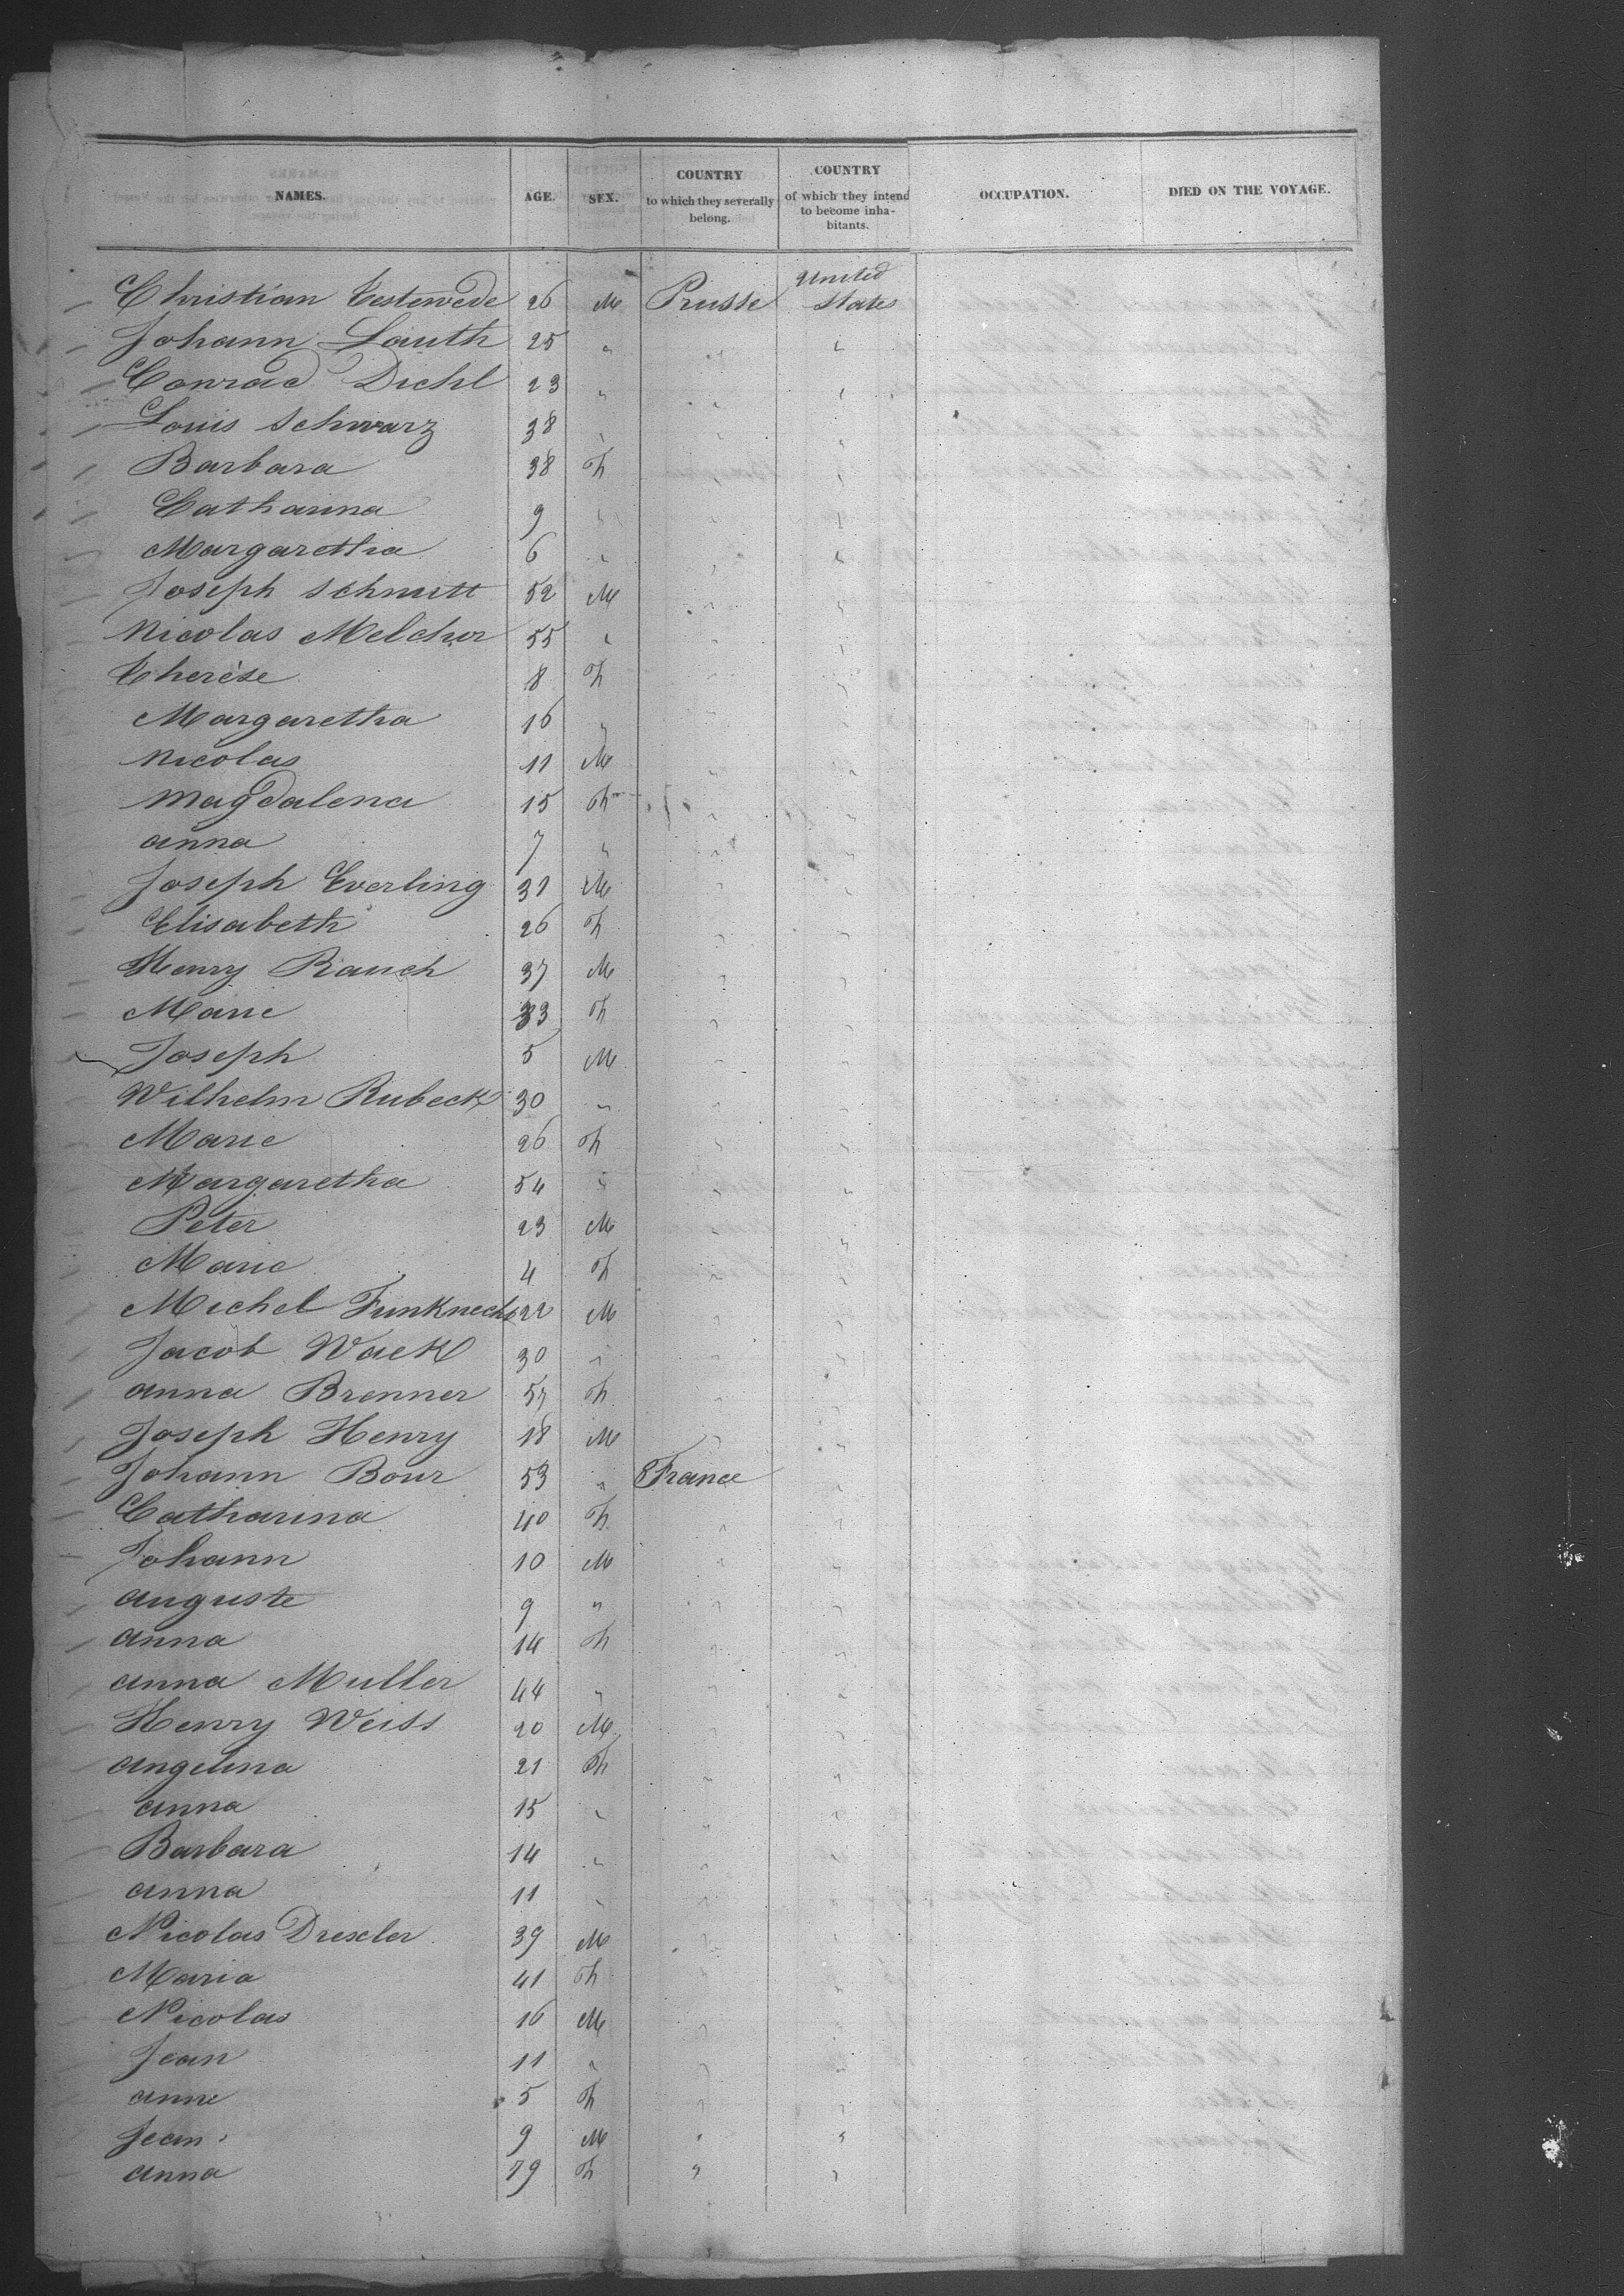 NAMES. AGE. SEX. COUNTRY to which they severally belong. COUNTRY of which they intend to become inhabitants. OCCUPATION. DIED ON THE VOYAGE.
Christian Testewede 26 M Prusse United States
Johann Lauth 25 " " "
Conrad Diehl 23 " " "
Louis Schwarz 38 " " "
Barbara 38 F " "
Catharina 9 " " "
Margaretha 6 " " "
Joseph Schmitt 52 M " "
Nicolas Melchior 55 " " "
Therèse 8 F " "
Margaretha 16 " " "
Nicolas 11 M " "
Magdalena 15 F " "
anna 7 " " "
Joseph Everling 31 M " "
Elisabeth 26 F " "
Henry Rauch 37 M " "
Marie 33 F " "
Joseph 5 M " "
Wilhelm Rubeck 30 " " "
Marie 26 F " "
Margaretha 54 " " "
Peter 23 M " "
Marie 4 F " "
Michel Funknecht 22 M " "
Jacob Wack 30 " " "
anna Brenner 57 F " "
Joseph Henry 18 M " "
Johann Bour 53 " France "
Catharina 40 F " "
Johann 10 M " "
auguste 9 " " "
anna 14 F " "
anna Muller 44 " " "
Henry Weiss 20 M " "
angelina 21 F " "
anna 15 " " "
Barbara 14 " " "
anna 11 " " "
Nicolas Drexler 39 M " "
Maria 41 F " "
Nicolas 16 M " "
Jean 11 " " "
anne 5 F " "
Jean 9 M " "
anna 79 F " "